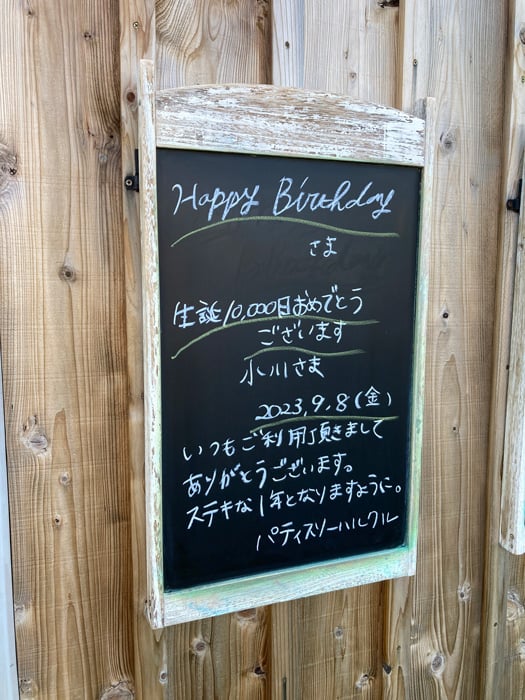 Happy Birthday
さま
生誕10,000日おめでとう
ございます
小川さま
2023.9.8(金)
いつもご利用頂きまして
ありがとうございます。
ステキな1年となりますように。
パティスリーハルクル